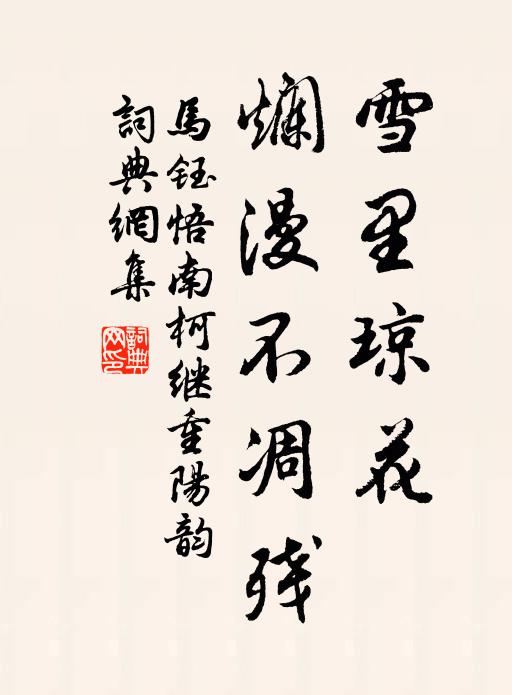 雪里琼花
爛漫不凋残
馬鈺悟南柯继重陽韵
詞典網集
詞典网印